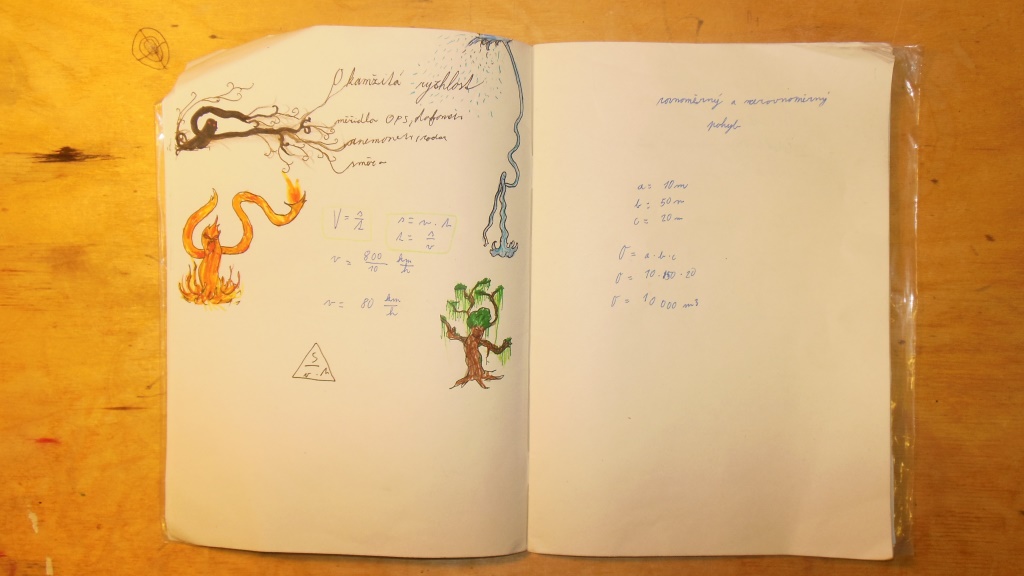 Okamžitá rychlost
měřidla GPS, 
anemometr, radar
směr
V = s/t
s = v · t
t = s/v
v = 800/10 km/h
v = 80 km/h
s
v · t
rovnoměrný a nerovnoměrný
pohyb
a = 10 m
b = 50 m
c = 20 m
V = a · b · c
V = 10 · 50 · 20
V = 10 000 m3